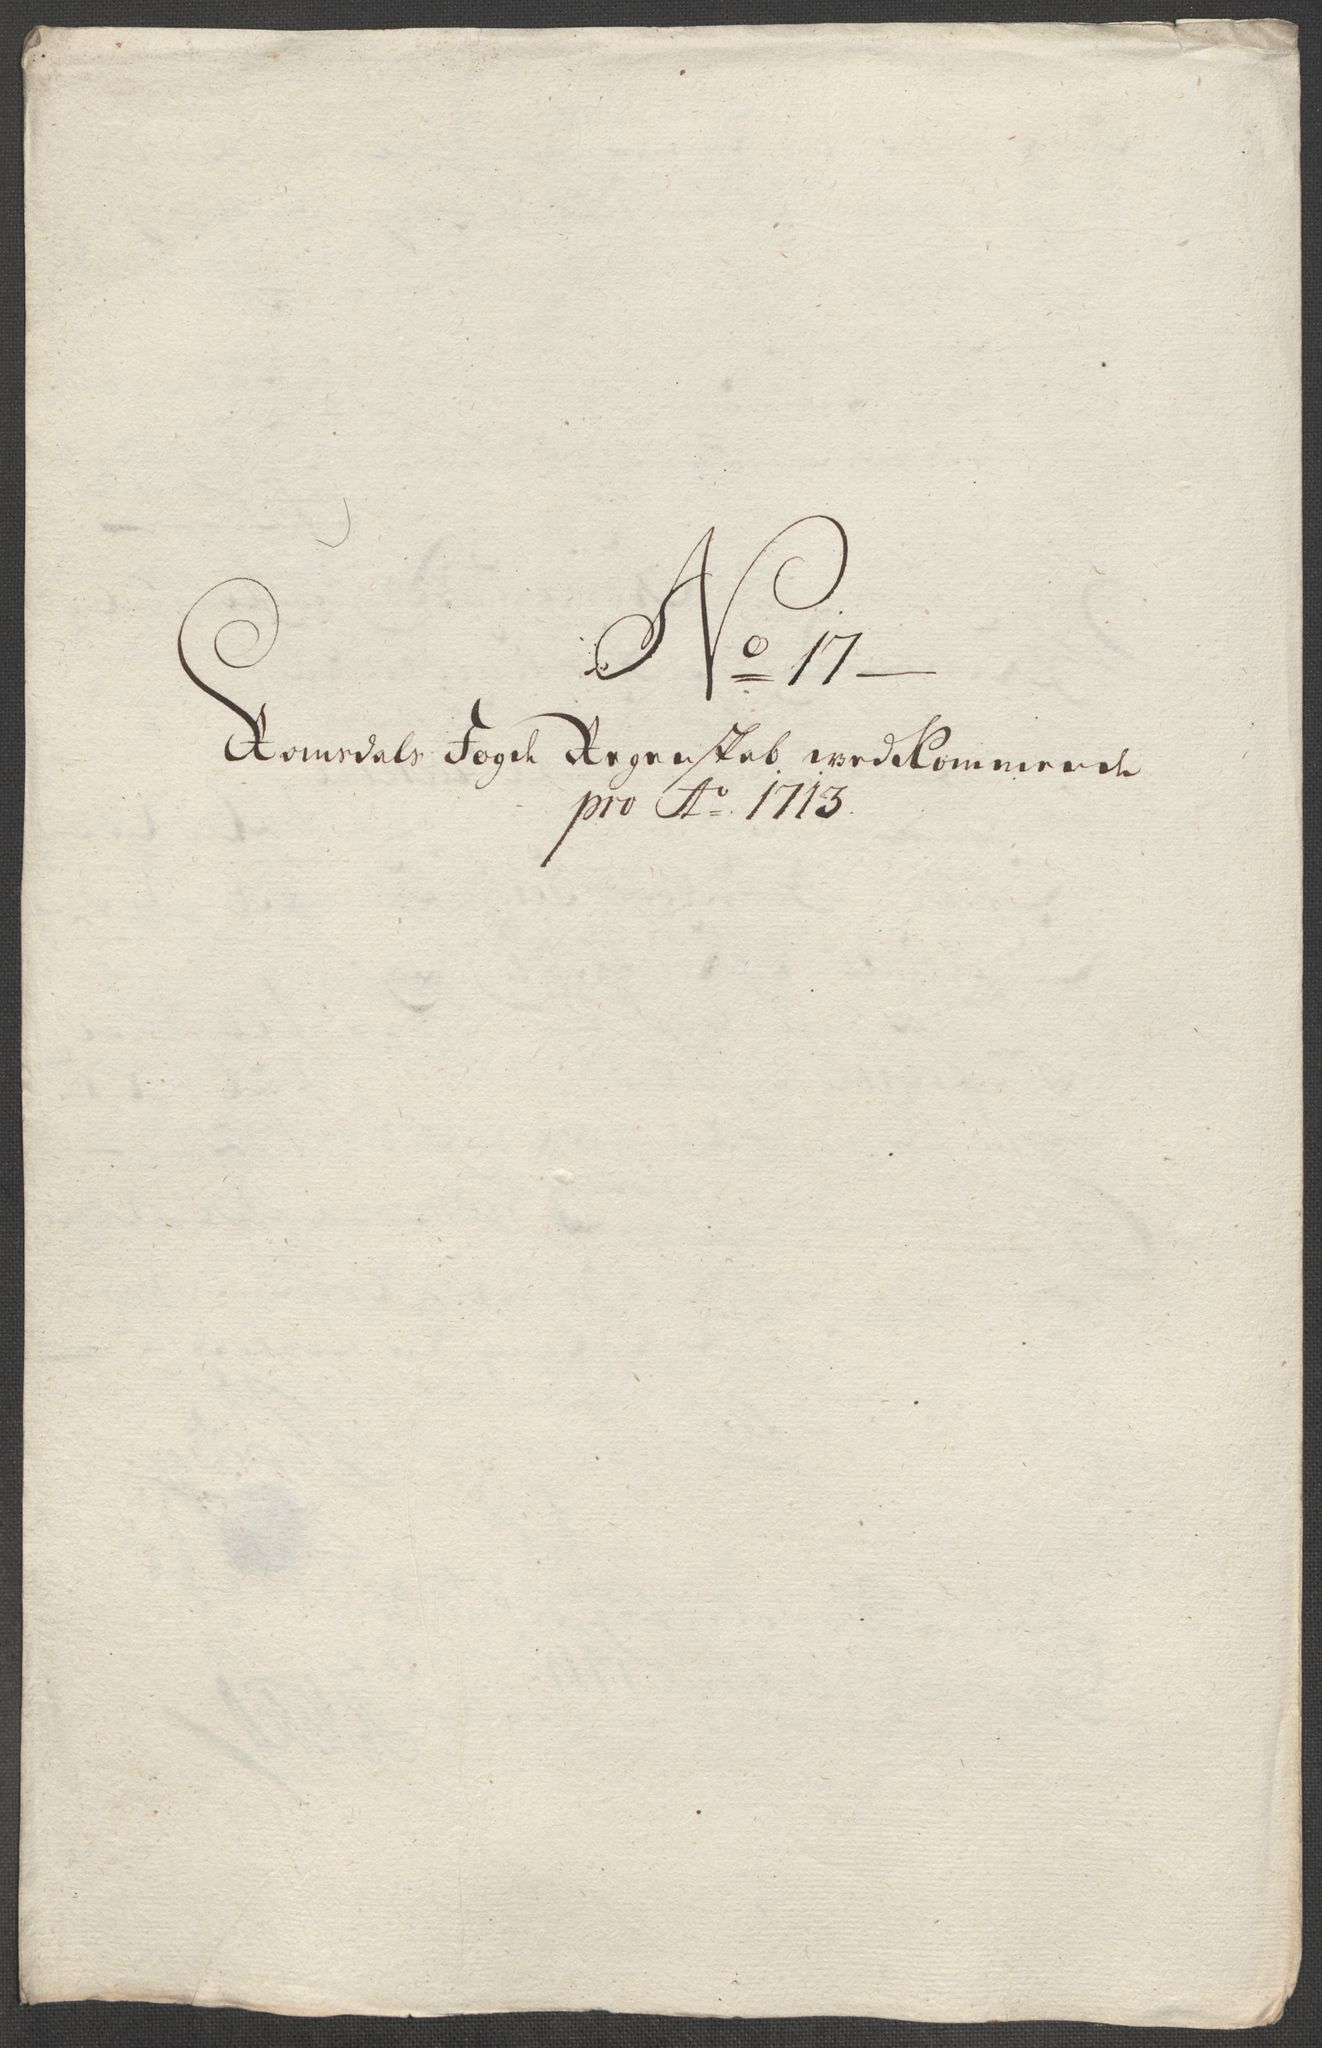 No 17
Romsdals Fogde Regenskab wedkommende
pro Ao. 1713.